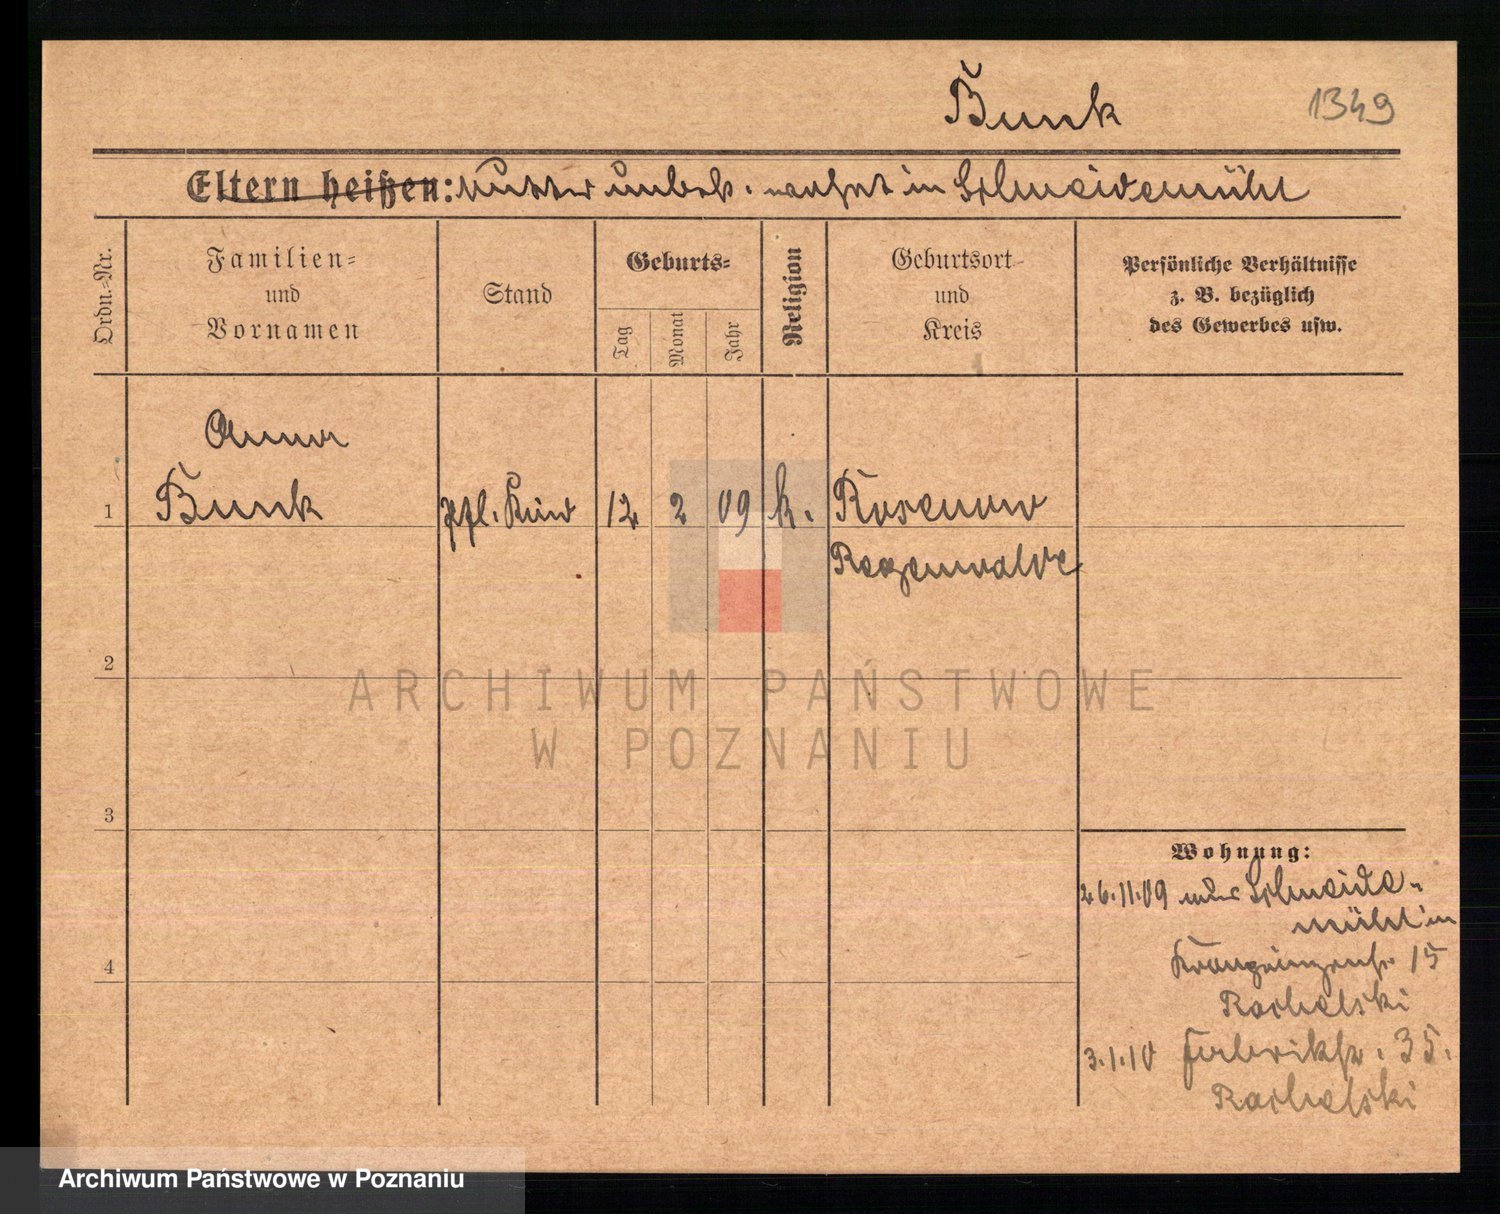 Bunk 1349
Eltern heißen: Mutter unbek. wohnt in Schneidemühl
Ordn.-Nr.
Familien=
und
Vornamen
Stand
Geburts=
Tag
Monat
Jahr
Religion
Geburtsort
und
Kreis
Persönliche Verhältnisse
z. B. bezüglich
des Gewerbes usw.
Anna
1 Bunk pfl. Kind 12 2 09 k. Rosenow
Regenwalde
2
ARCHIWUM PAŃSTWOWE
W POZNANIU
3
Wohnung:
26.11.09 Schneide-
mühl in
4
15
Rachelski
3.1.10 Fabrikstr. 35.
Rachelski
Archiwum Państwowe w Poznaniu